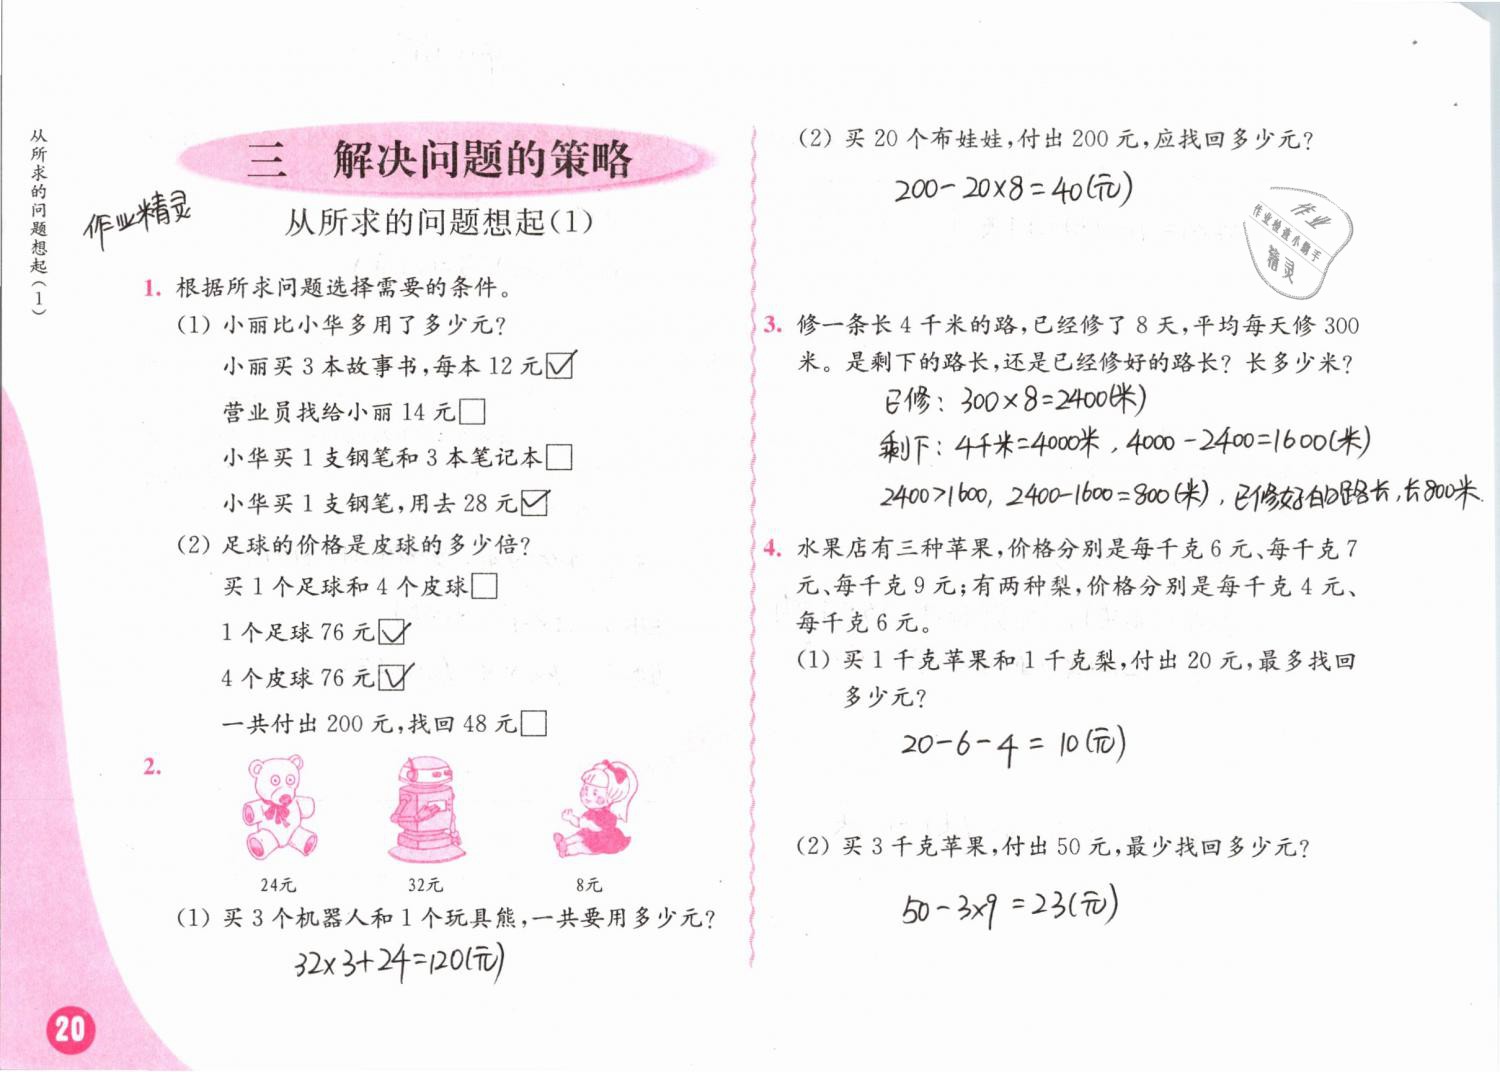 从所求的问题想起(1)
作业精灵
三 解决问题的策略
从所求的问题想起(1)
1. 根据所求问题选择需要的条件。
(1) 小丽比小华多用了多少元?
小丽买 3 本故事书,每本 12 元☑
营业员找给小丽 14 元□
小华买 1 支钢笔和 3 本笔记本□
小华买 1 支钢笔,用去 28 元☑
(2) 足球的价格是皮球的多少倍?
买 1 个足球和 4 个皮球□
1 个足球 76 元☑
4 个皮球 76 元☑
一共付出 200 元,找回 48 元□
2.
24元 32元 8元
(1) 买 3 个机器人和 1 个玩具熊,一共要用多少元?
32×3+24=120(元)
20
(2) 买 20 个布娃娃,付出 200 元,应找回多少元?
200-20×8=40(元)
作业
作业检查小帮手
精灵
3. 修一条长 4 千米的路,已经修了 8 天,平均每天修 300
米。是剩下的路长,还是已经修好的路长? 长多少米?
已修: 300×8=2400(米)
剩下: 4千米=4000米, 4000-2400=1600(米)
2400>1600, 2400-1600=800(米), 已修好的路长,长800米.
4. 水果店有三种苹果,价格分别是每千克 6 元、每千克 7
元、每千克 9 元;有两种梨,价格分别是每千克 4 元、
每千克 6 元。
(1) 买 1 千克苹果和 1 千克梨,付出 20 元,最多找回
多少元?
20-6-4=10(元)
(2) 买 3 千克苹果,付出 50 元,最少找回多少元?
50-3×9=23(元)